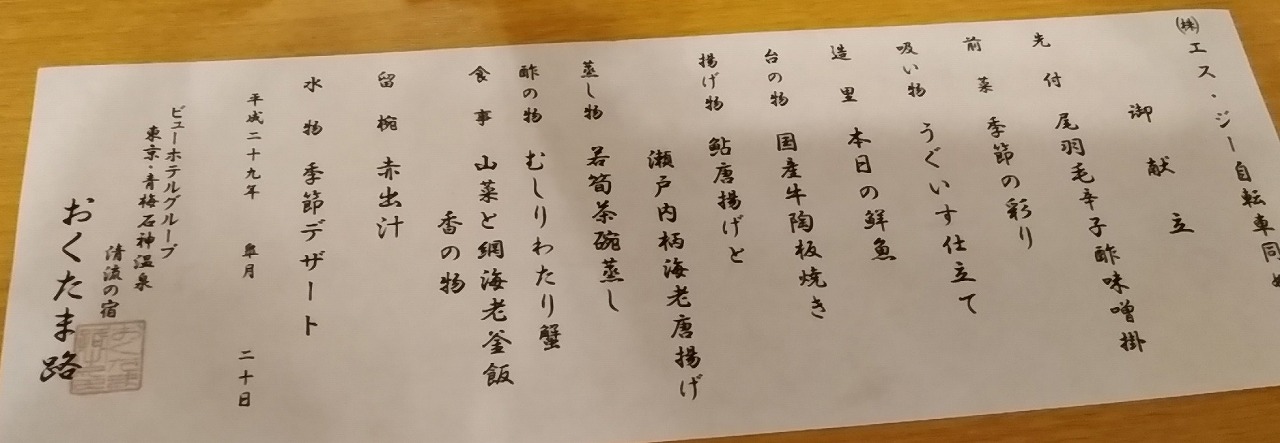 ㈱エス・ジー自転車同
御献立
先付 尾羽毛辛子酢味噌掛
前菜 季節の彩り
吸い物 うぐいす仕立て
造里 本日の鮮魚
台の物 国産牛陶板焼き
揚げ物 鮎唐揚げと
瀬戸内柄海老唐揚げ
蒸し物 若筍茶碗蒸し
酢の物 むしりわたり蟹
食事 山菜と網海老釜飯
香の物
留椀 赤出汁
水物 季節デザート
平成二十九年 皐月 二十日
ビューホテルグループ
東京青梅石神温泉
清流の宿
おくたま路